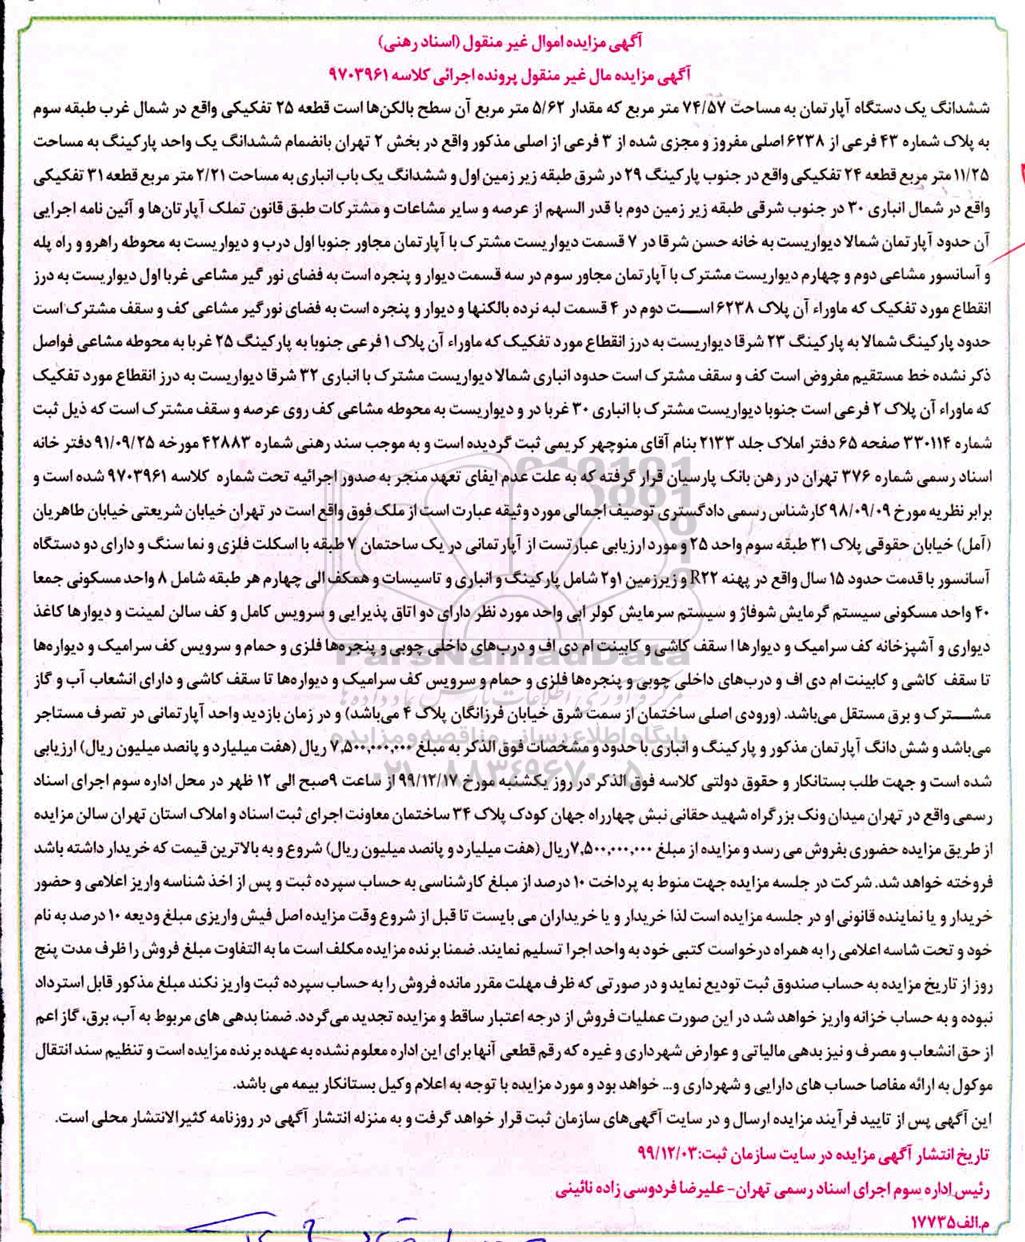 آگهی مزایده اموال غیر منقول (اسناد رهنی)
آگهی مزایده مال غیر منقول پرونده اجرائی کلاسه ۹۷۰۳۹۶۱
ششدانگ یک دستگاه آپارتمان به مساحت ۷۴/۵۷ متر مربع که مقدار ۵/۶۲ متر مربع آن سطح بالکن‌ها است قطعه ۲۵ تفکیکی واقع در شمال غرب طبقه سوم
به پلاک شماره ۴۳ فرعی از ۶۲۳۸ اصلی مفروز و مجزی شده از ۳ فرعی از اصلی مذکور واقع در بخش ۲ تهران بانضمام ششدانگ یک واحد پارکینگ به مساحت
۱۱/۲۵ متر مربع قطعه ۲۴ تفکیکی واقع در جنوب پارکینگ ۲۹ در شرق طبقه زیر زمین اول و ششدانگ یک باب انباری به مساحت ۲/۲۱ متر مربع قطعه ۳۱ تفکیکی
واقع در شمال انباری ۳۰ در جنوب شرقی طبقه زیر زمین دوم با قدر السهم از عرصه و سایر مشاعات و مشترکات طبق قانون تملک آپارتان‌ها و آئین نامه اجرایی
آن حدود آپارتمان شمالا دیواریست به خانه حسن شرقا در ۷ قسمت دیواریست مشترک با آپارتمان مجاور جنوبا اول درب و دیواریست به محوطه راهرو و راه پله
و آسانسور مشاعی دوم و چهارم دیواریست مشترک با آپارتمان مجاور سوم در سه قسمت دیوار و پنجره است به فضای نور گیر مشاعی غربا اول دیواریست به درز
انقطاع مورد تفکیک که ماوراء آن پلاک ۶۲۳۸ است دوم در ۴ قسمت لبه نرده بالکنها و دیوار و پنجره است به فضای نورگیر مشاعی کف و سقف مشترک است
حدود پارکینگ شمالا به پارکینگ ۲۳ شرقا دیواریست به درز انقطاع مورد تفکیک که ماوراء آن پلاک ۱ فرعی جنوبا به پارکینگ ۲۵ غربا به محوطه مشاعی فواصل
ذکر نشده خط مستقیم مفروض است کف و سقف مشترک است حدود انباری شمالا دیواریست مشترک با انباری ۳۲ شرقا دیواریست به درز انقطاع مورد تفکیک
که ماوراء آن پلاک ۲ فرعی است جنوبا دیواریست مشترک با انباری ۳۰ غربا در و دیواریست به محوطه مشاعی کف روی عرصه و سقف مشترک است که ذیل ثبت
شماره ۳۳۰۱۱۴ صفحه ۶۵ دفتر املاک جلد ۲۱۳۳ بنام آقای منوچهر کریمی ثبت گردیده است و به موجب سند رهنی شماره ۴۲۸۸۳ مورخه ۹۱/۰۹/۲۵ دفتر خانه
اسناد رسمی شماره ۳۷۶ تهران در رهن بانک پارسیان قرار گرفته که به علت عدم ایفای تعهد منجر به صدور اجرائیه تحت شماره کلاسه ۹۷۰۳۹۶۱ شده است و
برابر نظریه مورخ ۹۸/۰۹/۰۹ کارشناس رسمی دادگستری توصیف اجمالی مورد وثیقه عبارت است از ملک فوق واقع است در تهران خیابان شریعتی خیابان طاهریان
(آمل) خیابان حقوقی پلاک ۳۱ طبقه سوم واحد ۲۵ و مورد ارزیابی عبارتست از آپارتمانی در یک ساختمان ۷ طبقه با اسکلت فلزی و نما سنگ و دارای دو دستگاه
آسانسور با قدمت حدود ۱۵ سال واقع در پهنه R۲۲ و زیرزمین ۱و۲ شامل پارکینگ و انباری و تاسیسات و همکف الی چهارم هر طبقه شامل ۸ واحد مسکونی جمعا
۴۰ واحد مسکونی سیستم گرمایش شوفاژ و سیستم سرمایش کولر ابی واحد مورد نظر دارای دو اتاق پذیرایی و سرویس کامل و کف سالن لمینت و دیوارها کاغذ
دیواری و آشپزخانه کف سرامیک و دیوارها ا سقف کاشی و کابینت ام دی اف و درب‌های داخلی چوبی و پنجره‌ها فلزی و حمام و سرویس کف سرامیک و دیواره‌ها
تا سقف کاشی و کابینت ام دی اف و درب‌های داخلی چوبی و پنجره‌ها فلزی و حمام و سرویس کف سرامیک و دیواره‌ها تا سقف کاشی و دارای انشعاب آب و گاز
مشترک و برق مستقل می‌باشد. (ورودی اصلی ساختمان از سمت شرق خیابان فرزانگان پلاک ۴ می‌باشد) و در زمان بازدید واحد آپارتمانی در تصرف مستاجر
می‌باشد و شش دانگ آپارتمان مذکور و پارکینگ و انباری با حدود و مشخصات فوق الذکر به مبلغ ۷,۵۰۰,۰۰۰,۰۰۰ ریال (هفت میلیارد و پانصد میلیون ریال) ارزیابی
شده است و جهت طلب بستانکار و حقوق دولتی کلاسه فوق الذکر در روز یکشنبه مورخ ۹۹/۱۲/۱۷ از ساعت ۹صبح الی ۱۲ ظهر در محل اداره سوم اجرای اسناد
رسمی واقع در تهران میدان ونک بزرگراه شهید حقانی نبش چهارراه جهان کودک پلاک ۳۴ ساختمان معاونت اجرای ثبت اسناد و املاک استان تهران سالن مزایده
از طریق مزایده حضوری بفروش می رسد و مزایده از مبلغ ۷,۵۰۰,۰۰۰,۰۰۰ریال (هفت میلیارد و پانصد میلیون ریال) شروع و به بالاترین قیمت که خریدار داشته باشد
فروخته خواهد شد. شرکت در جلسه مزایده جهت منوط به پرداخت ۱۰ درصد از مبلغ کارشناسی به حساب سپرده ثبت و پس از اخذ شناسه واریز اعلامی و حضور
خریدار و یا نماینده قانونی او در جلسه مزایده است لذا خریدار و یا خریداران می بایست تا قبل از شروع وقت مزایده اصل فیش واریزی مبلغ ودیعه ۱۰ درصد به نام
خود و تحت شاسه اعلامی را به همراه درخواست کتبی خود به واحد اجرا تسلیم نمایند. ضمنا برنده مزایده مکلف است ما به التفاوت مبلغ فروش را ظرف مدت پنج
روز از تاریخ مزایده به حساب صندوق ثبت تودیع نماید و در صورتی که ظرف مهلت مقرر مانده فروش را به حساب سپرده ثبت واریز نکند مبلغ مذکور قابل استرداد
نبوده و به حساب خزانه واریز خواهد شد در این صورت عملیات فروش از درجه اعتبار ساقط و مزایده تجدید می‌گردد. ضمنا بدهی های مربوط به آب، برق، گاز اعم
از حق انشعاب و مصرف و نیز بدهی مالیاتی و عوارض شهرداری و غیره که رقم قطعی آنها برای این اداره معلوم نشده به عهده برنده مزایده است و تنظیم سند انتقال
موکول به ارائه مفاصا حساب های دارایی و شهرداری و... خواهد بود و مورد مزایده با توجه به اعلام وکیل بستانکار بیمه می باشد.
این آگهی پس از تایید فرآیند مزایده ارسال و در سایت آگهی‌های سازمان ثبت قرار خواهد گرفت و به منزله انتشار آگهی در روزنامه کثیرالانتشار محلی است.
تاریخ انتشار آگهی مزایده در سایت سازمان ثبت: ۹۹/۱۲/۰۳
رئیس اداره سوم اجرای اسناد رسمی تهران- علیرضا فردوسی زاده نائینی
م.الف۱۷۷۳۵
ParsNamadData
پایگاه اطلاع رسانی مناقصه و مزایده
۰۲۱-۸۸۳۴۹۶۷۰-۵